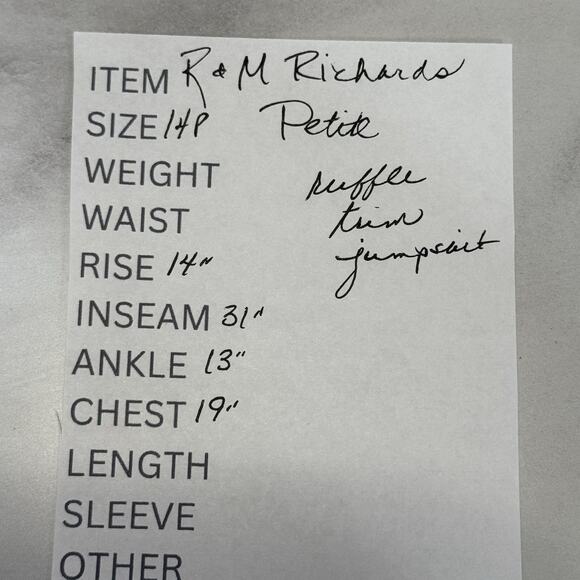 ITEM R & M Richards
SIZE 14P Petite
WEIGHT
ruffle
WAIST
trim
RISE 14"
jumpsuit
INSEAM 31"
ANKLE 13"
CHEST 19"
LENGTH
SLEEVE
OTHER